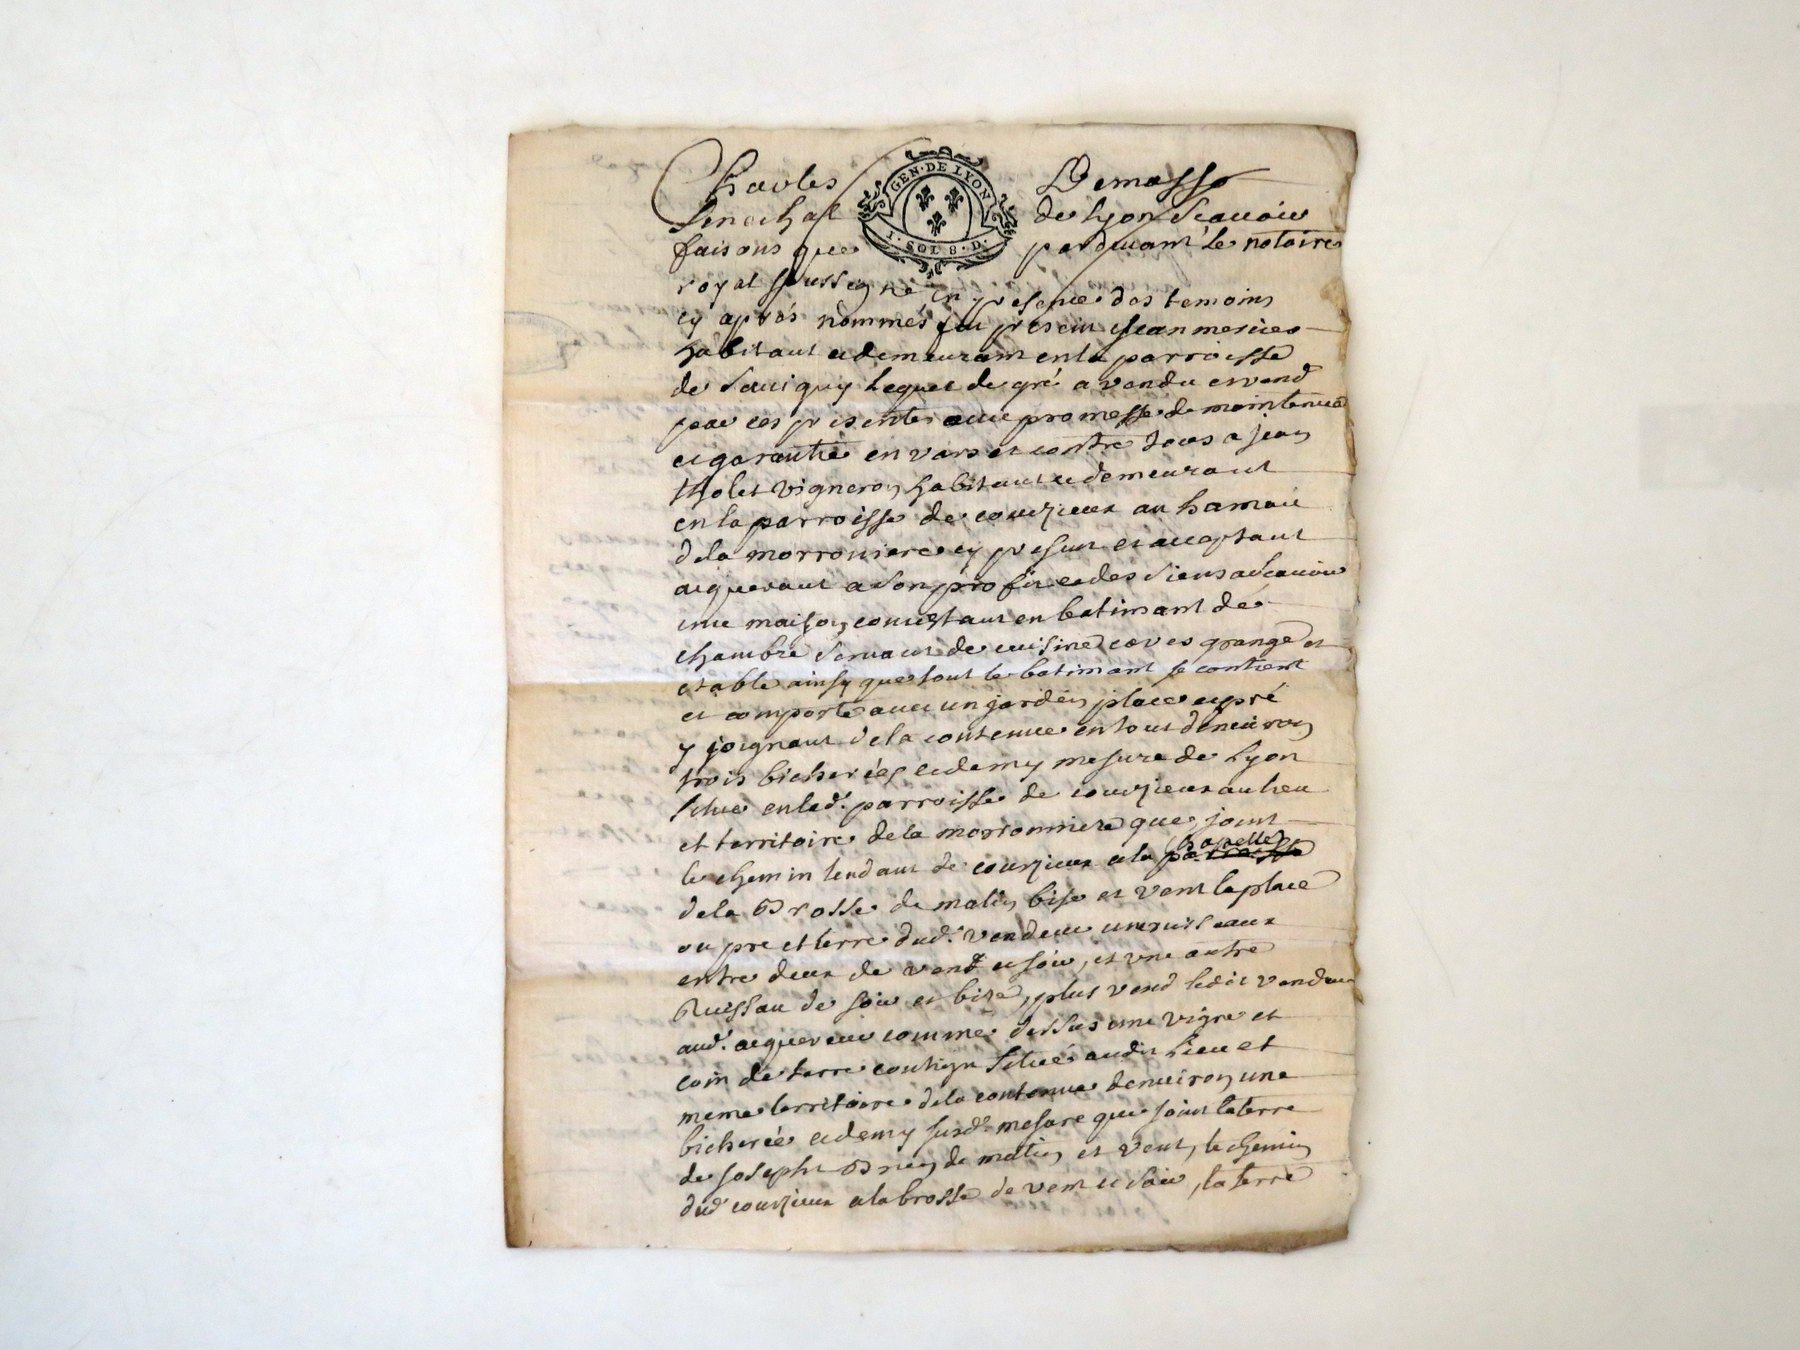 Charles Demasso
GEN·DE LYON
Senechal de Lyon Scavoir
1·SOL 8·D·
faisons que pardevant le notaire
royal soussigné en presence des temoins
cy aprés nommés fut present Jean mercier
habitant et demeurant en la parroisse
de Savigny lequel de gré a vendu et vend
par ces presentes avec promesse de maintenue
et garantie envers et contre tous a jean
tholet vigneron habitant et demeurant
en la parroisse de courzieux au hamau
de la morroniere cy present et acceptant
aquerant a son profit et des siens a Scavoir
une maison consistant en batimant de
chambre servant de cuisine caves grange et
etable ainsy que tout le batimant se contient
et comporte avec un jardin place et pré
y joignant de la contenue en tout denviron
trois bicherées et demy mesure de Lyon
situé en lad. parroisse de courzieux au lieu
et territoire de la morronniere que joint
le chemin tendant de courzieux a la chapelle
de la Brosse de matin bise et vent la place
ou pre et terre dud. vendeur un ruisseaux
entre deux de vend et soir, et une autre
Ruissau de soir et bize, plus vend ledit vendeur
aud. aquereur comme dessus une vigne et
coin de terre contigu situé audit lieu et
meme territoire de la contenue denviron une
bicherée et demy susd. mesure que joint la terre
de Joseph de matin et vent, le chemin
dud courzieux a la brosse de vent et soir, la terre